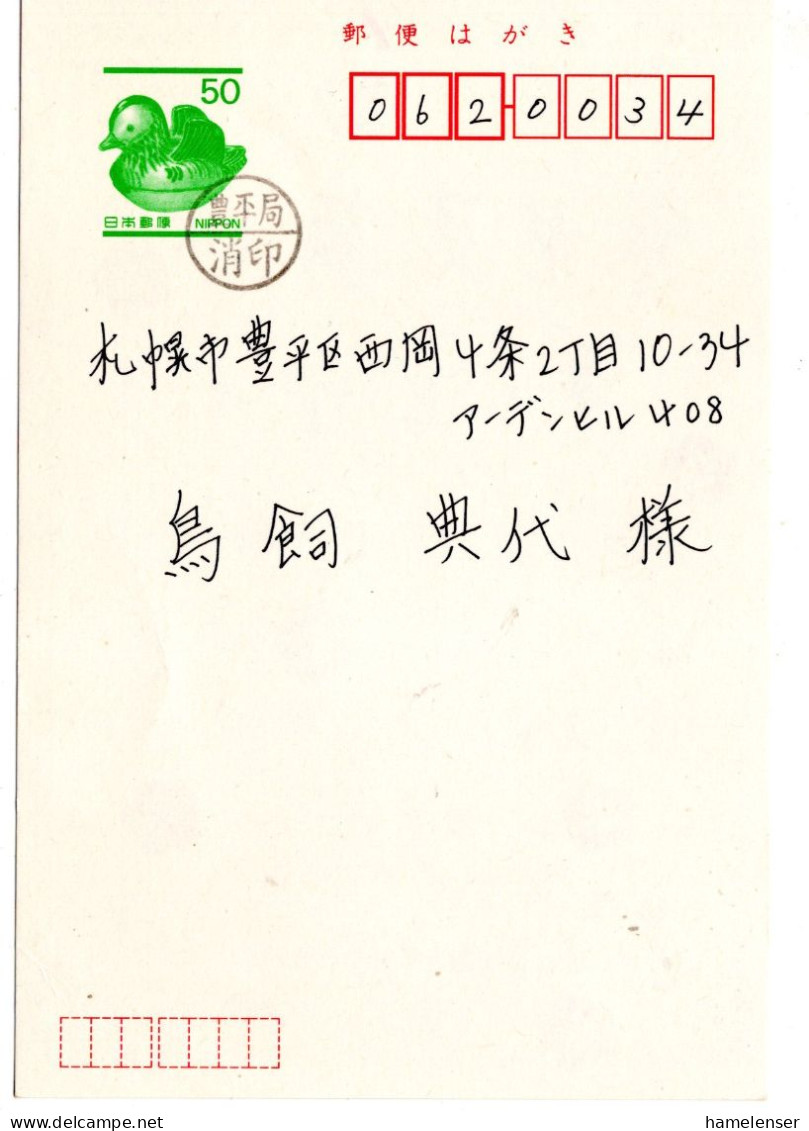 郵便はがき
50
0620034
日本郵便 NIPPON
豊平局
消印
札幌市豊平区西岡4条2丁目10-34
アーデンヒル408
鳥飼 典代 様
hamelenser